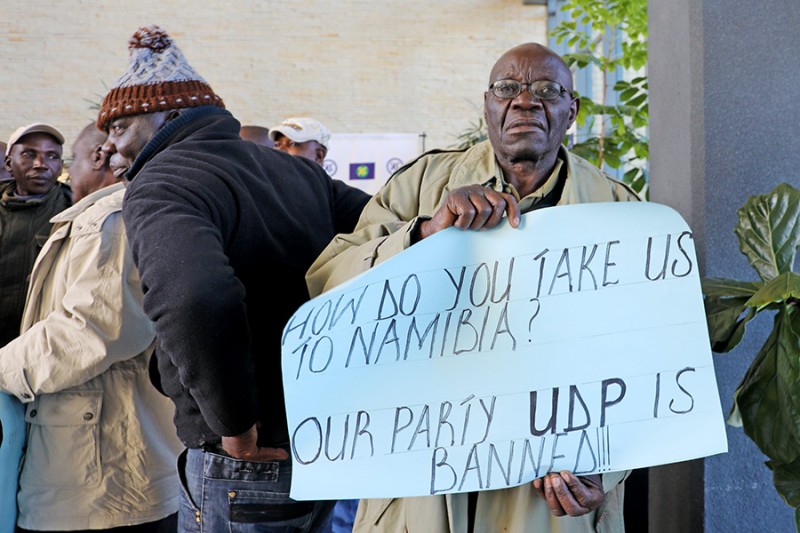 HOW DO YOU TAKE US
TO NAMIBIA?
OUR PARTY UDP IS
BANNED!!!